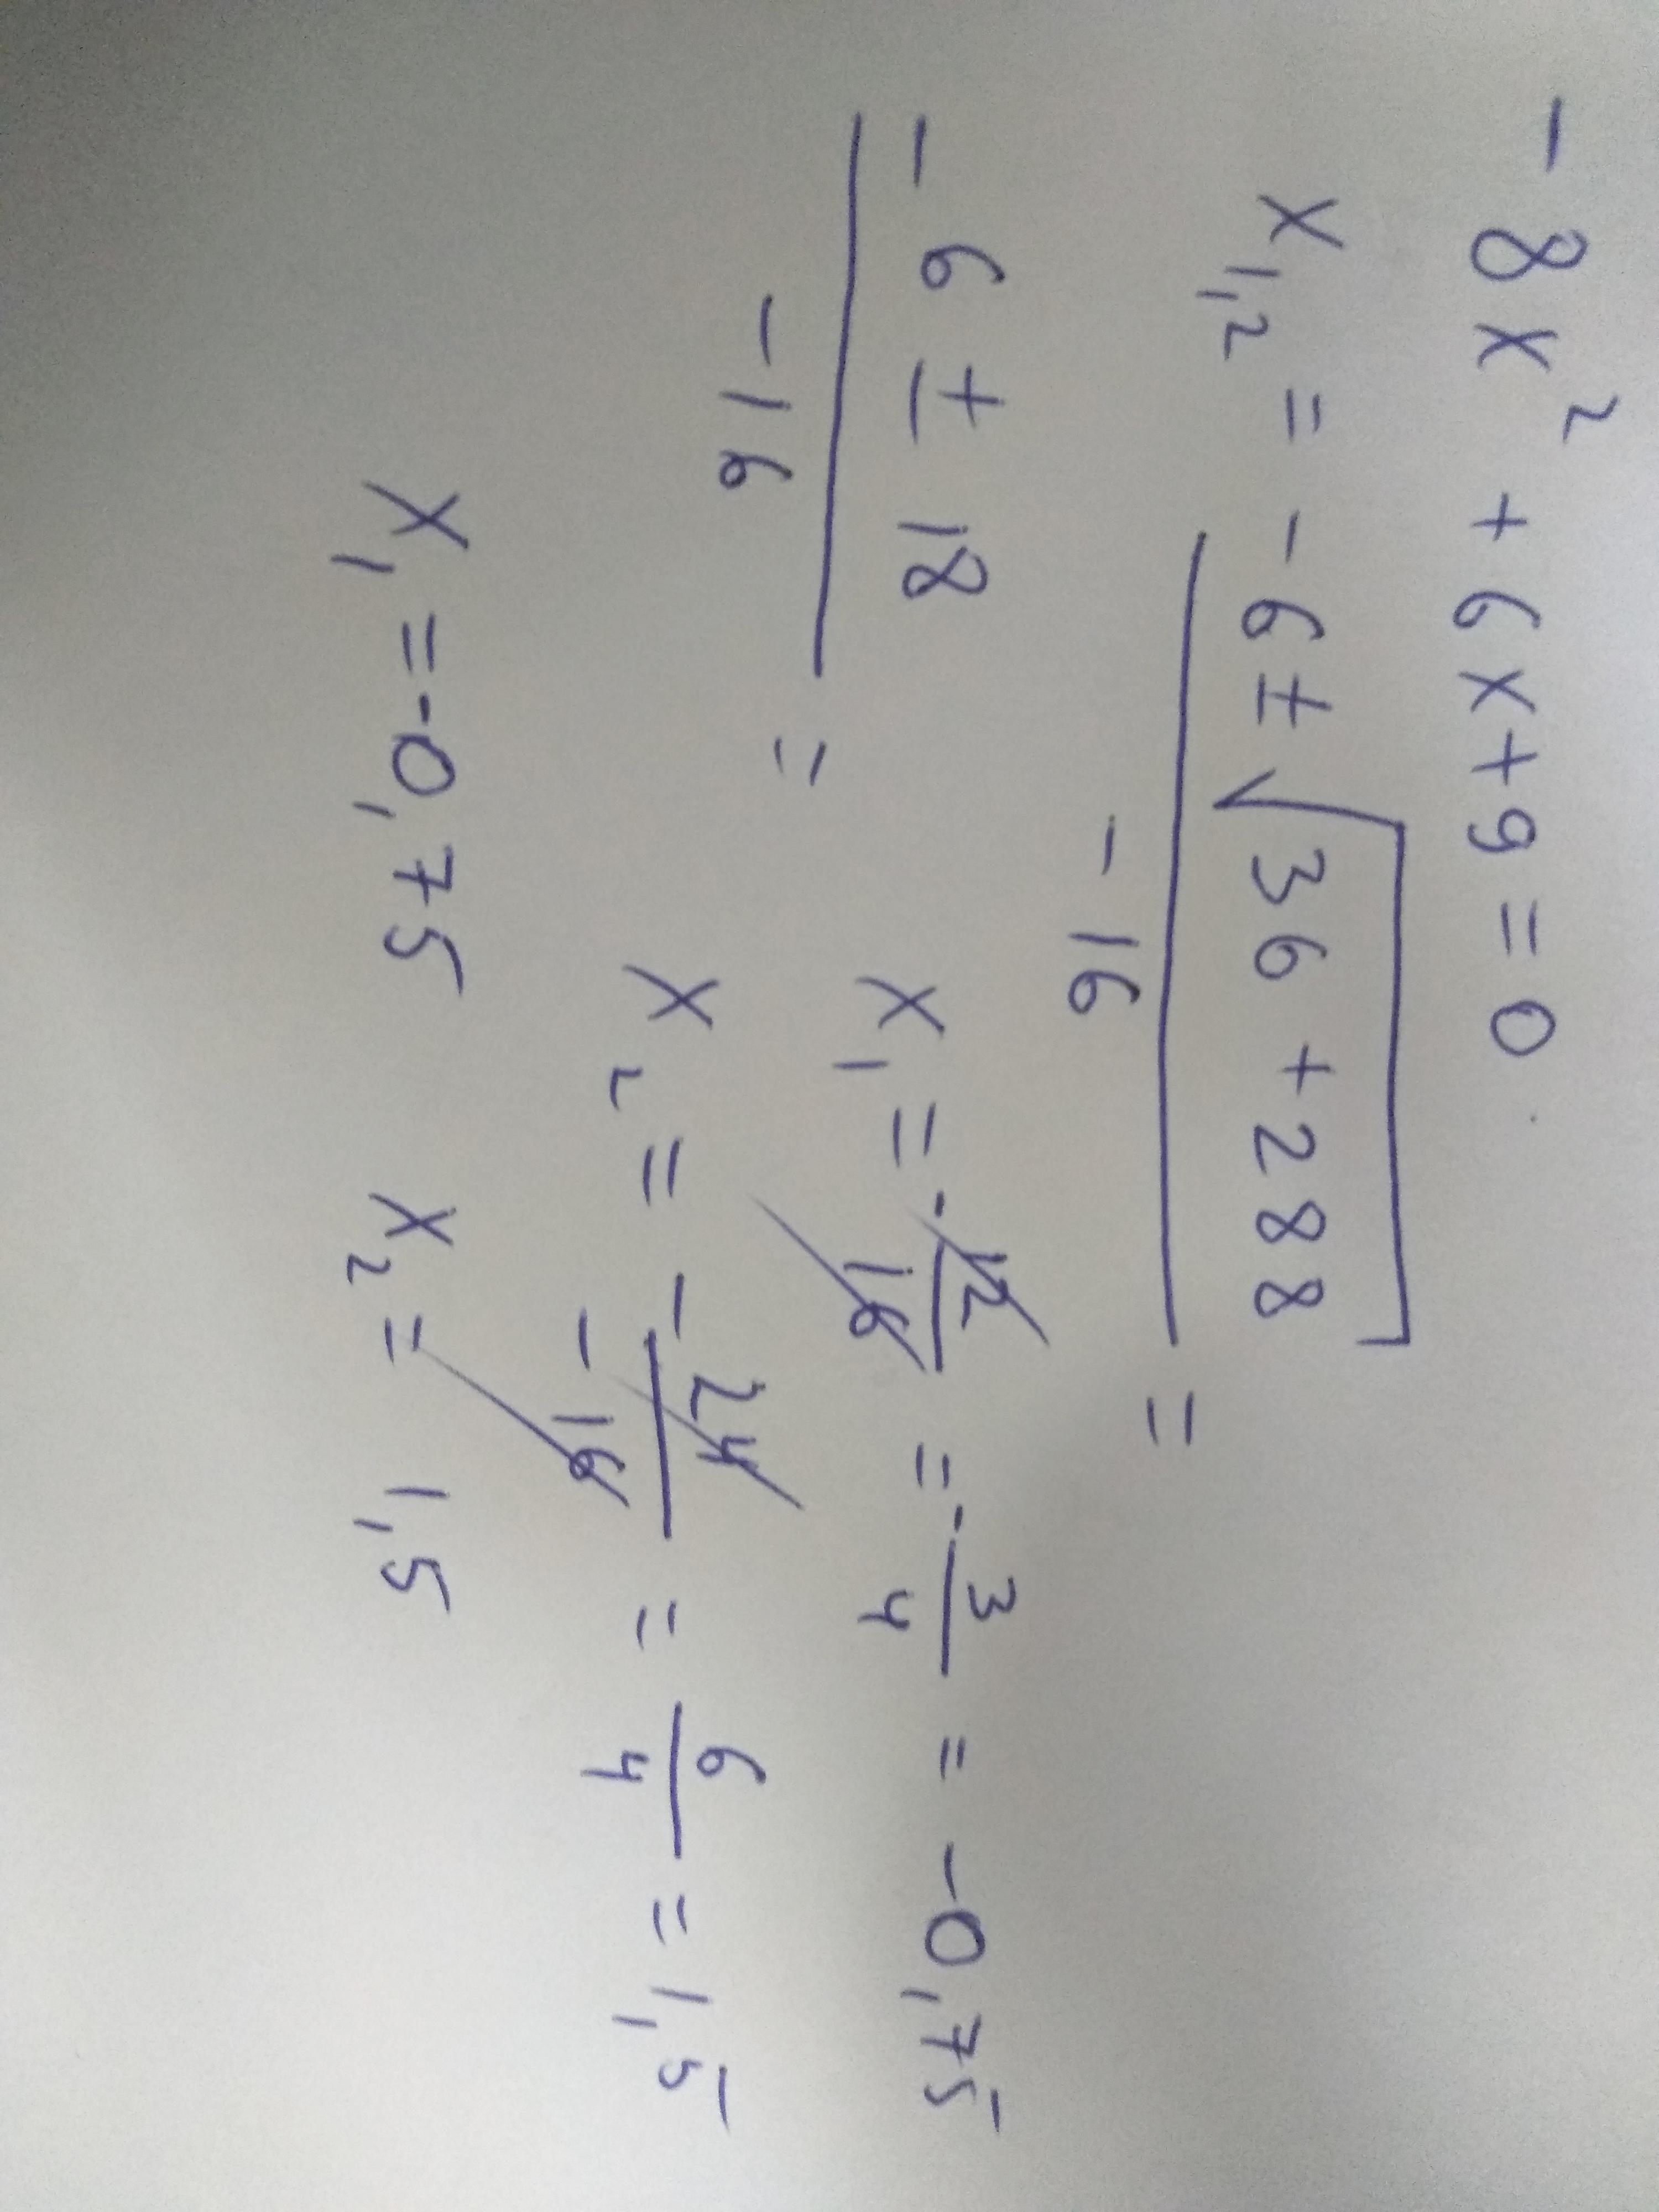 -8x² + 6x+9=0
x₁,₂ = -6±√36+288 / -16 =
-6 ± 18 / -16 =
x₁ = -12/16 = -3/4 = -0,75
x₂ = -24/-16 = 6/4 = 1,5
x₁ =-0,75 x₂= 1,5